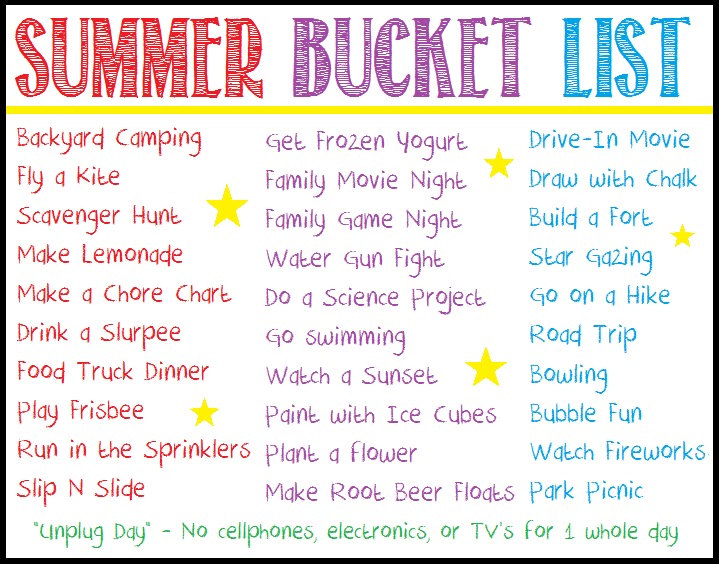 SUMMER BUCKET LIST
Backyard Camping
Fly a Kite
Scavenger Hunt
Make Lemonade
Make a Chore Chart
Drink a Slurpee
Food Truck Dinner
Play Frisbee
Run in the Sprinklers
Slip N Slide
Get Frozen Yogurt
Family Movie Night
Family Game Night
Water Gun Fight
Do a Science Project
Go swimming
Watch a Sunset
Paint with Ice Cubes
Plant a flower
Make Root Beer Floats
Drive-In Movie
Draw with Chalk
Build a Fort
Star Gazing
Go on a Hike
Road Trip
Bowling
Bubble Fun
Watch Fireworks
Park Picnic
"Unplug Day" - No cellphones, electronics, or TV's for 1 whole day